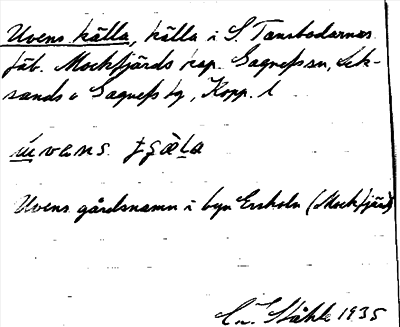 Uvens källa, källa i S. Tansbodarnas
fäb. Mockfjärds kap. Gagnefs sn, Lek-
sands o Gagnefs tg, Kopp. l
Uvens gårdsnamn i byn Ersholn (Mockfjärd)
C.I. Ståhle 1935